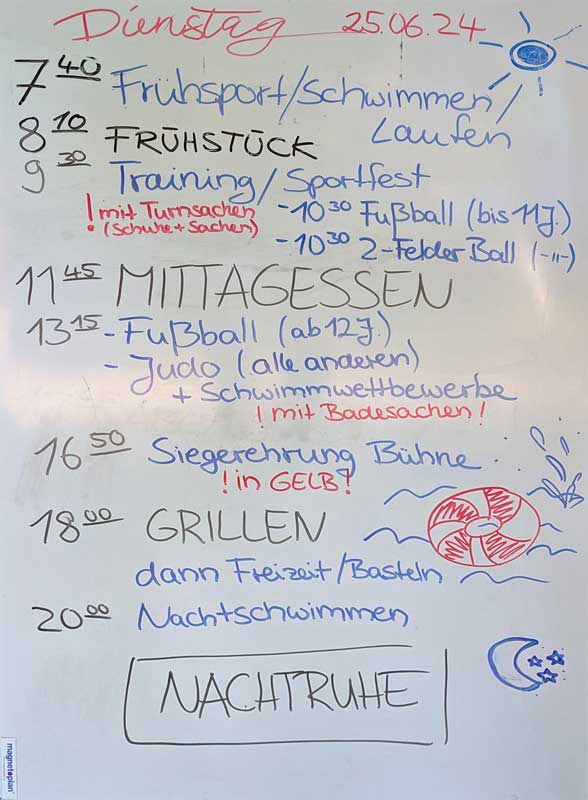 Dienstag 25.06.24
7 40 Frühsport/Schwimmen/
Laufen
8 10 FRÜHSTÜCK
9 30 Training/Sportfest
! mit Turnsachen
(Schuhe + Sachen)
- 10 30 Fußball (bis 11 J.)
- 10 30 2-Felder Ball (-"-)
11 45 MITTAGESSEN
13 15 - Fußball (ab 12 J.)
- Judo (alle anderen)
+ Schwimmwettbewerbe
! mit Badesachen!
16 50 Siegerehrung Bühne
! in GELB!
18 00 GRILLEN
dann Freizeit/Basteln
20 00 Nachtschwimmen
NACHTRUHE
magnetoplan